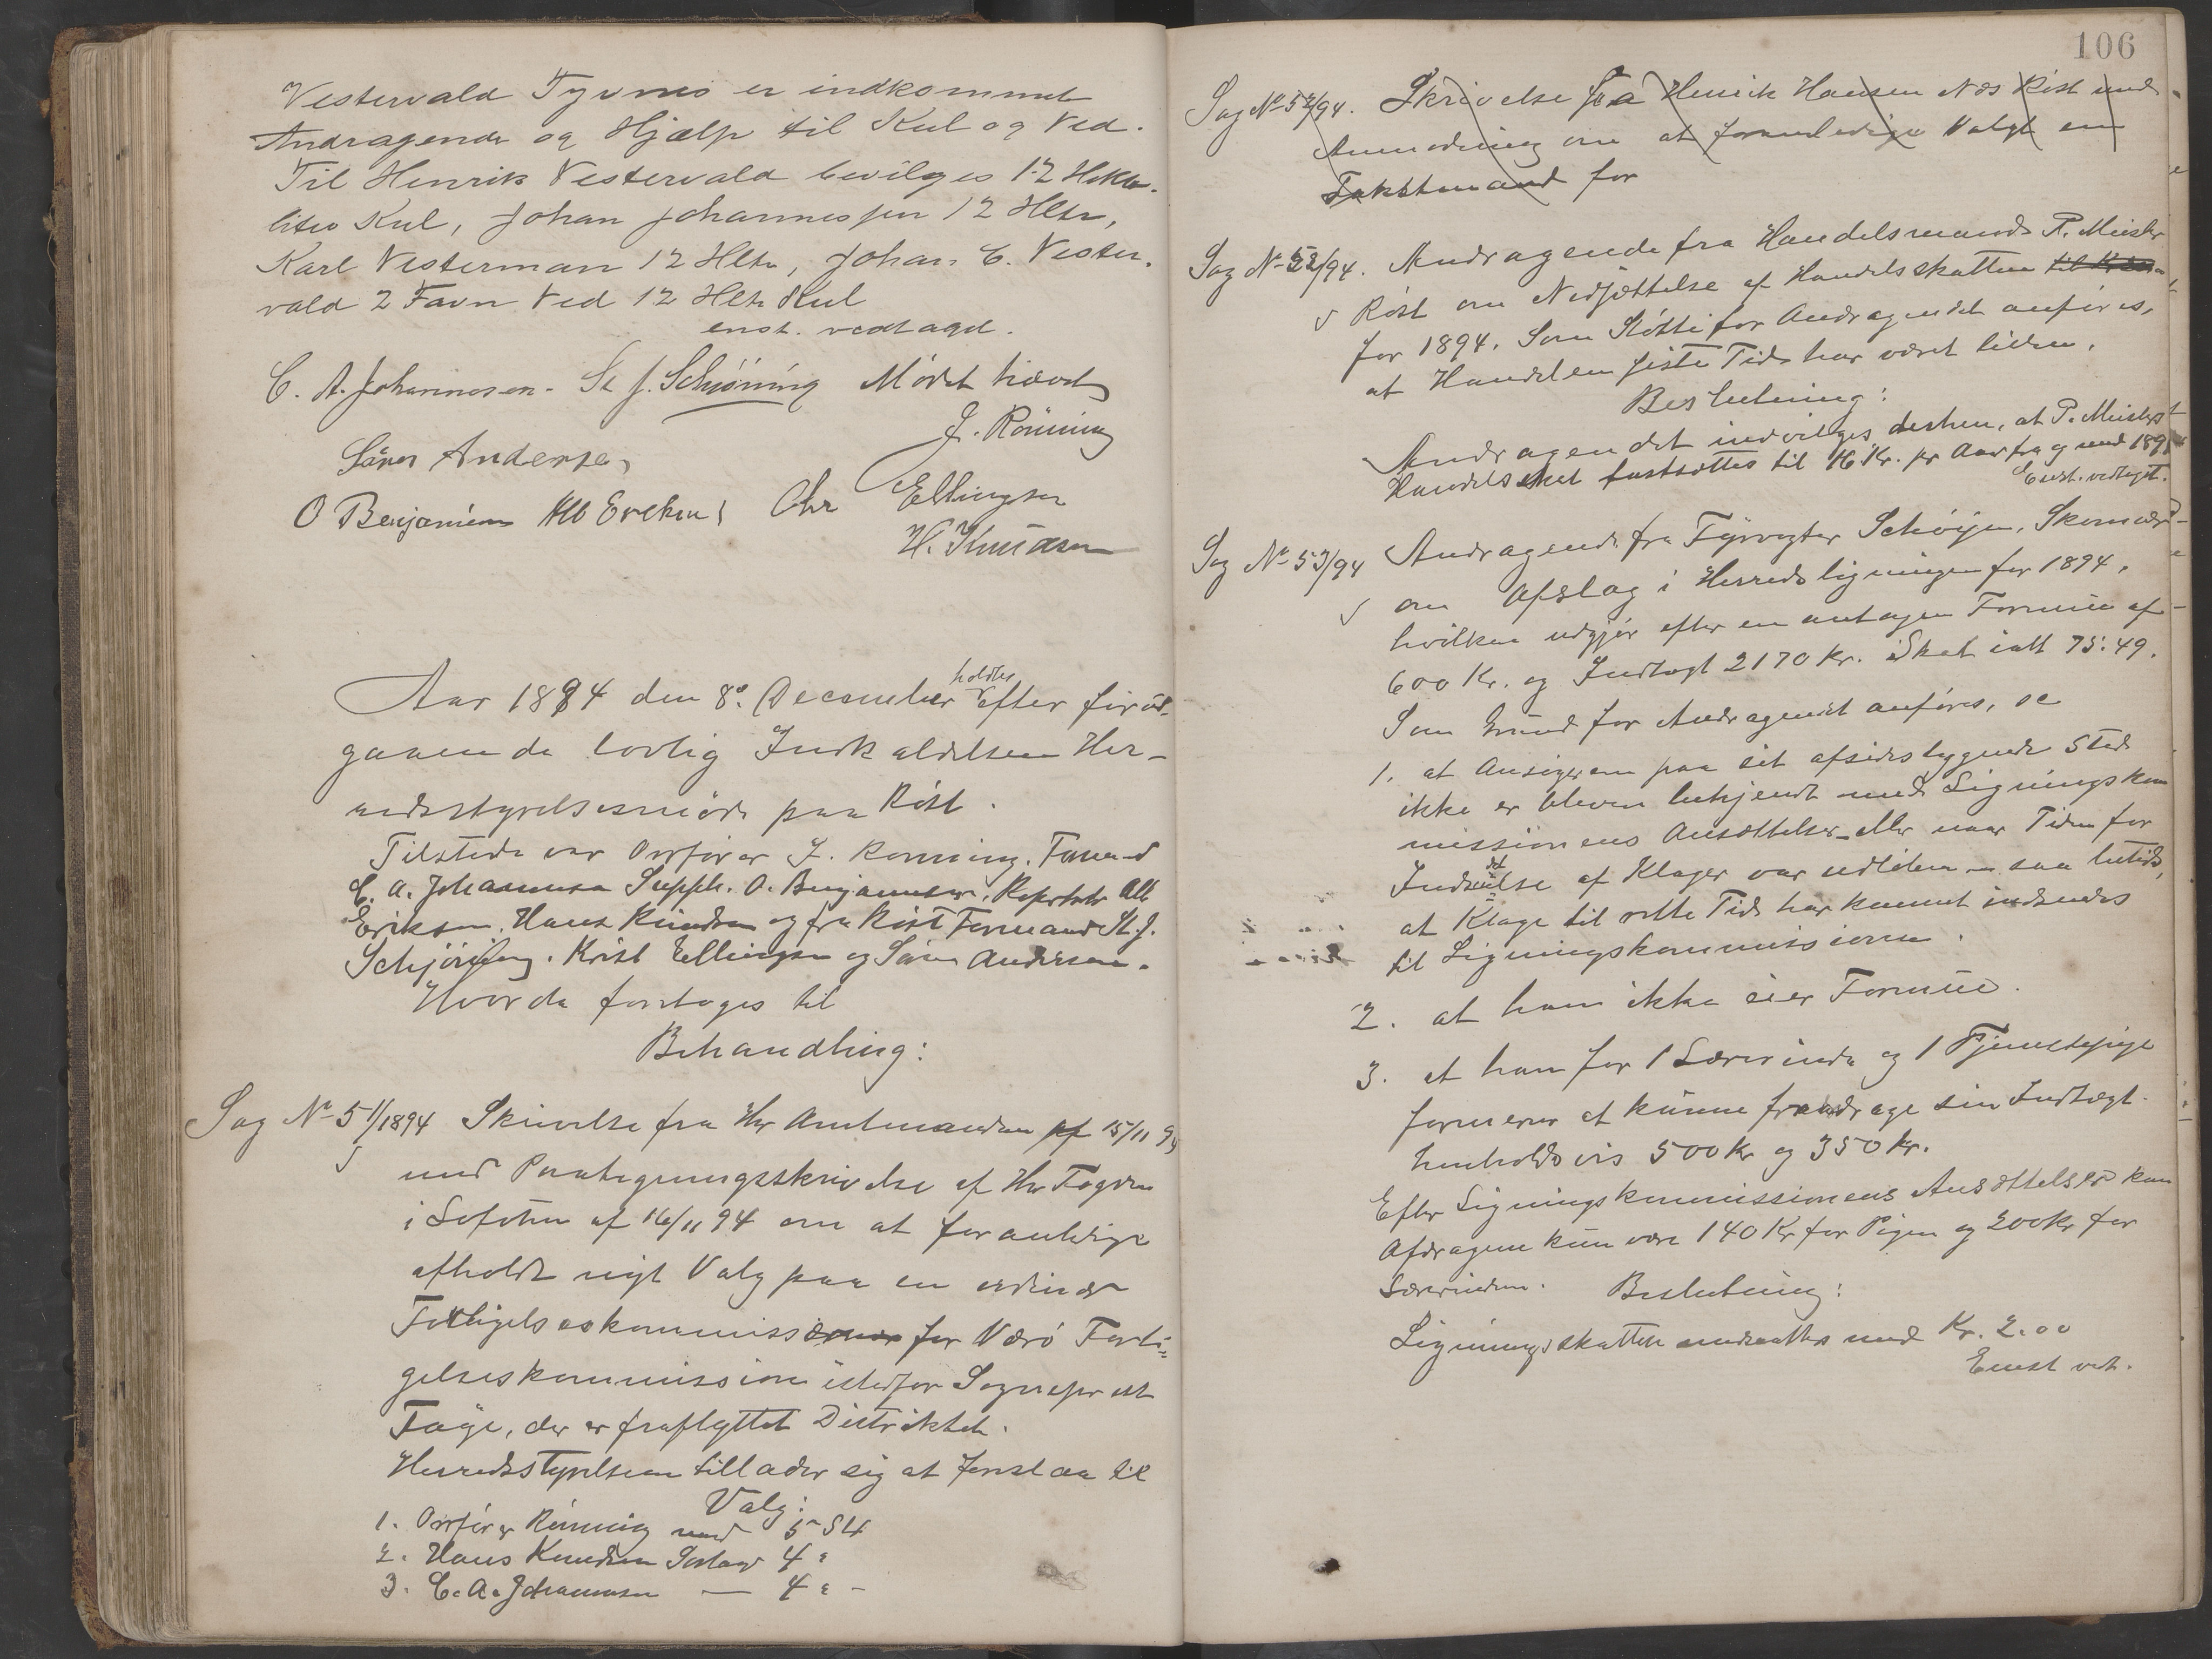 Vestervald Tyvnes er indkommet
Andragende og Hjælp til Kul og Ved.
Til Henrik Vestervald bevilges 12 Hekto-
liter Kul, Johan Johannessen 12 Hltr,
Karl Vesterman 12 Hltr, Johan C. Vester-
vald 2 Favn Ved 12 Hltr Kul
enst. vedtaget.
C. A. Johannesen. St J. Schjöning Mödet hævet
J. Rönning
Sören Andersen
O Benjaminsen Alb Eriksen Chr Ellingsen
H. Knudsen
Aar 1894 den 8de December holdtes Efter forud-
gaaende lovlig Indkaldelse Her-
redsstyrelsesmöde paa Röst.
Tilstede var Ordförer J. Rönning. Formand
C. A. Johannesen Supplt. O. Benjaminsen, Reprtntr Alb
Eriksen. Hans Knudsen og fra Röst Formand St. J.
Schjöning. Krist Ellingsen og Sören Andersen.
Hvor da foretages til
Behandling:
Sag No 51/1894 Skrivelse fra Hr Amtmanden af 15/11 94
med Paategningsskrivelse af Hr Fogden
i Lofoten af 16/11 94 om at foranledige
afholdt nyt Valg paa en
Forligelseskommissær for Værö Forli-
gelseskommission istedfor Sogneprest
Fäye, der er fraflyttet Distriktet.
Herredsstyrelsen tillader sig at foreslaa til
Valg:
1. Ordförer Rönning med 5 St
2. Hans Knudsen Sorland 4 "
3. C. A. Johannesen — 4 " -
106
Sag No 52/94. Skrivelse fra Henrik Hansen Næs Röst med
Anmodning om at foranledige Valgt en
Takstmand for
Sag No 52/94. Andragende fra Handelsmand P. Meister
Röst om Nedsættelse af Handelsskatten
for 1894. Som Stötte for Andragendet anföres,
at Handelen siste Tid har været liden.
Beslutning:
Andragendet indvilges derhen, at P. Meisters
Handelsskat fastsættes til 16 Kr. pr Aar fra og med 1894
Enst. vedtaget.
Sag No 53/94 Andragende fra Fyrvogter Schöyen, Skomvær
om Afslag i Herredsligningen for 1894,
hvilken udgjör efter en antagen Formue af
600 Kr. og Indtægt 2170 Kr. Skat ialt 75:49.
Som Grund for Andragendet anföres,
1. at Ansögeren paa sit afsidesliggende Sted
ikke er bleven bekjendt med Ligningskom
missionens Ansættelser eller naar Tiden for
Indsendelse af Klager var udleben saa betids,
at Klage til rette Tid har kunnet indsendes
til Ligningskommissionen.
2. at han ikke eier Formue.
3. at han for 1 Lærerinde og 1 Tjenestepige
formener at kunne fradrage sin Indtægt
henholdsvis 500 Kr og 350 Kr.
Efter Ligningskommissionens Ansættelser kan
Afdragene kun være 140 Kr for Pigen og 200 Kr for
Lærerinden. Beslutning:
Ligningsskatten nedsættes med Kr. 2.00
Enst vet.